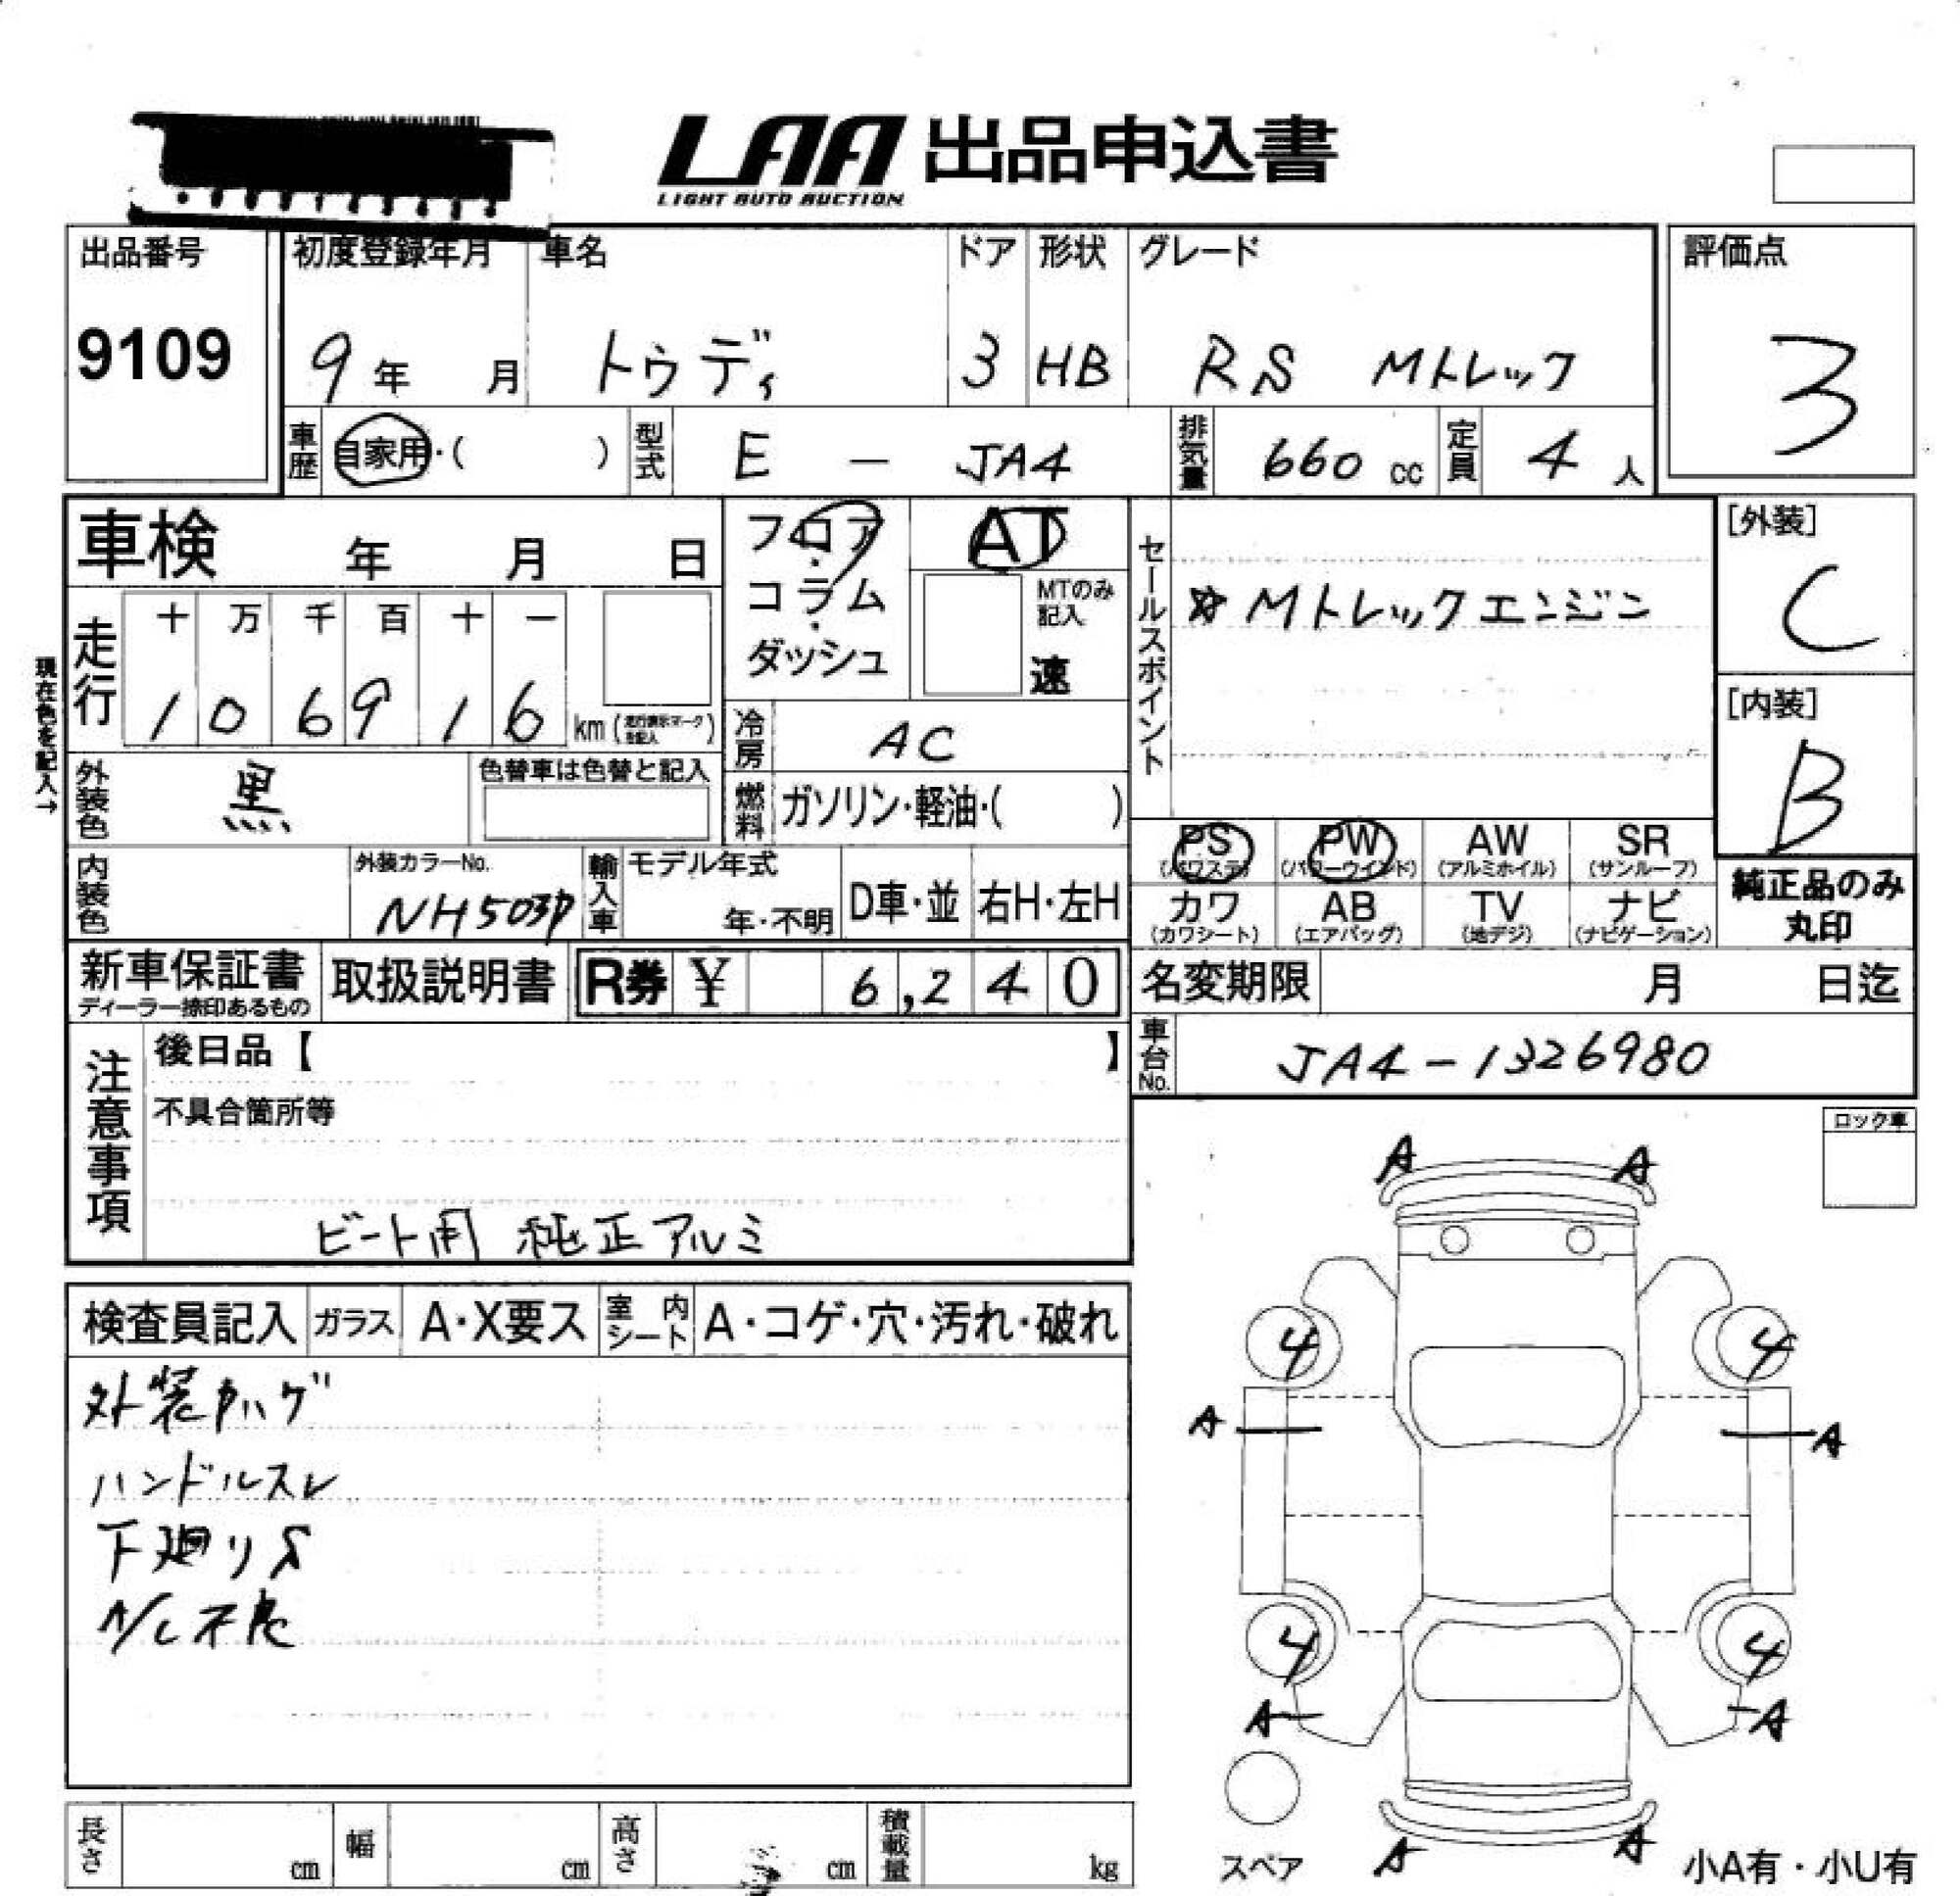 LAA 出品申込書
LIGHT AUTO AUCTION
出品番号 初度登録年月 車名 ドア 形状 グレード 評価点
9109 9年 月 トゥデイ 3 HB RS Mトレック 3
車歴 自家用・( ) 型式 E - JA4 排気量 660 cc 定員 4 人
車検 年 月 日
フロア・コラム・ダッシュ
AT
MTのみ記入
速
セールスポイント
☆Mトレックエンジン
[外装]
C
[内装]
B
現在色を記入→
走行 十 万 千 百 十 一
1 0 6 9 1 6 km (走行表示マークを記入)
冷房 AC
外装色 黒 色替車は色替と記入
燃料 ガソリン・軽油・( )
PS (パワステ) PW (パワーウインド) AW (アルミホイル) SR (サンルーフ)
内装色 外装カラーNo. NH503P 輸入車 モデル年式 年・不明 D車・並 右H・左H
カワ (カワシート) AB (エアバッグ) TV (地デジ) ナビ (ナビゲーション)
純正品のみ
丸印
新車保証書 取扱説明書 R券 ¥ 6,240 名変期限 月 日迄
ディーラー捺印あるもの
車台No. JA4-1326980
注意事項
後日品【 】
不具合箇所等
ビート用 純正アルミ
ロック車
A A
検査員記入 ガラス A・X要ス 室内シート A・コゲ・穴・汚れ・破れ
外装
ハンドルスレ
下廻りS
A/C不良
4 4
A A
4 4
A A
A A
スペア
小A有・小U有
長さ cm 幅 cm 高さ cm 積載量 kg